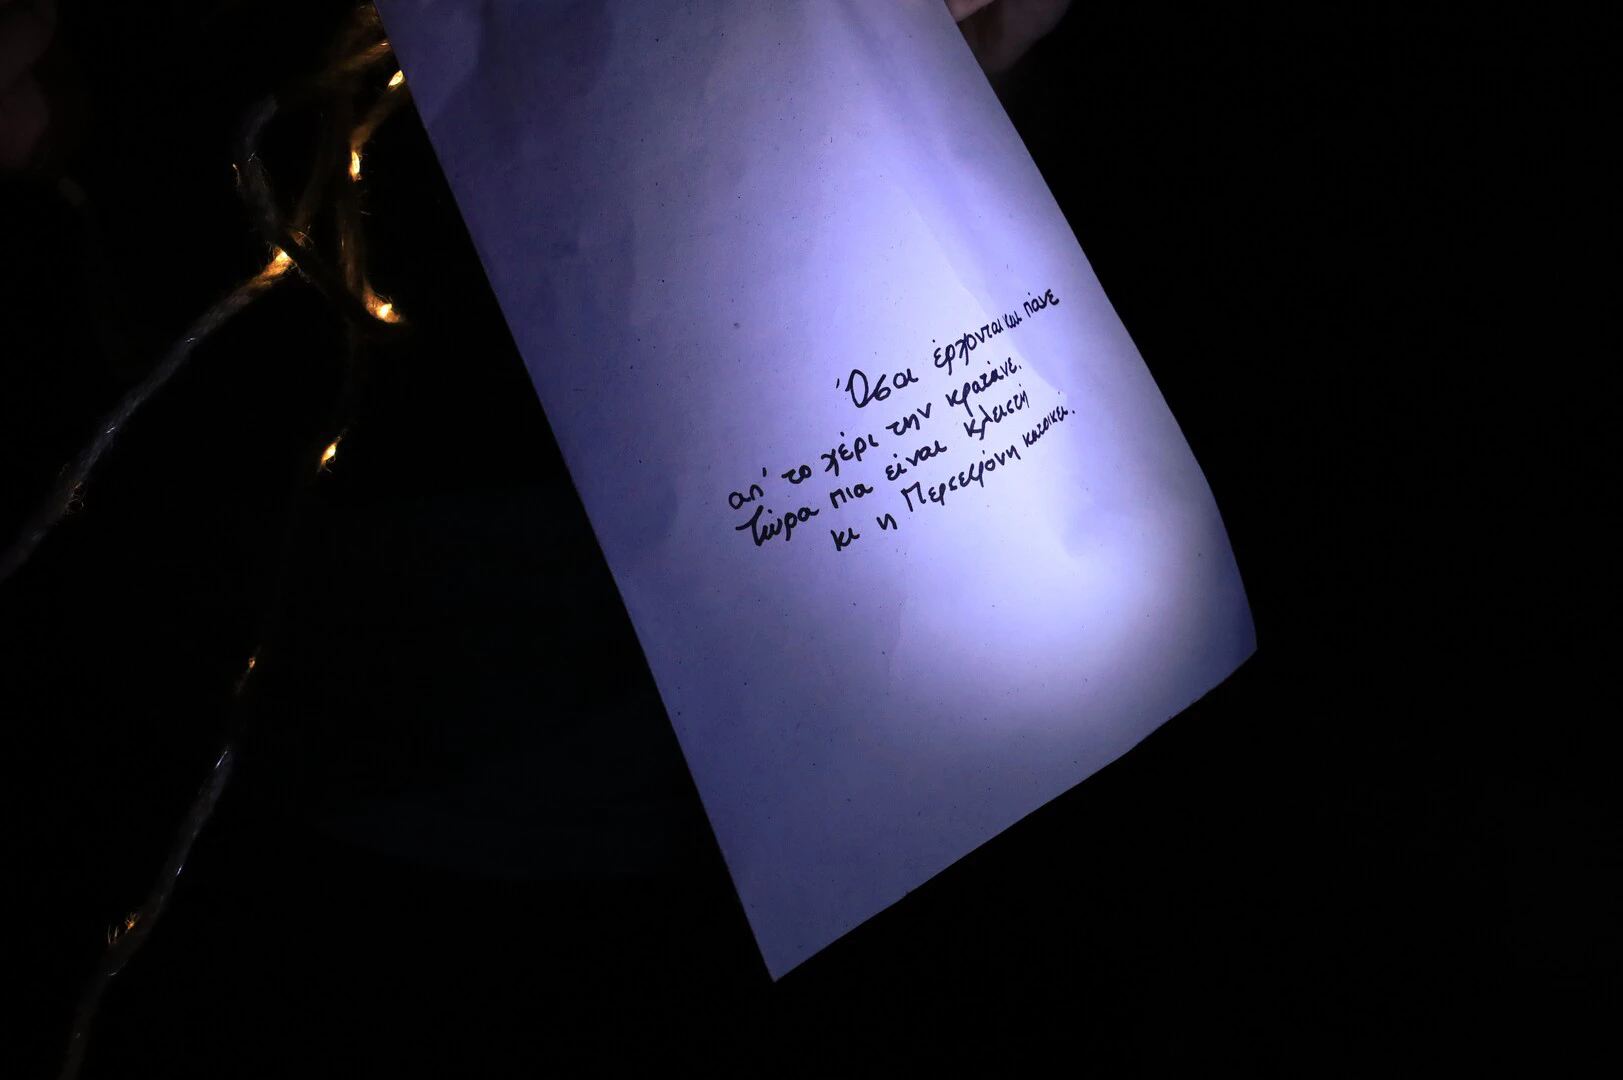 Όσοι έρχονται και πάνε
απ' το χέρι την κρατάνε.
Τώρα πια είναι κλειστή
κι η Περσεφόνη κατοικεί.